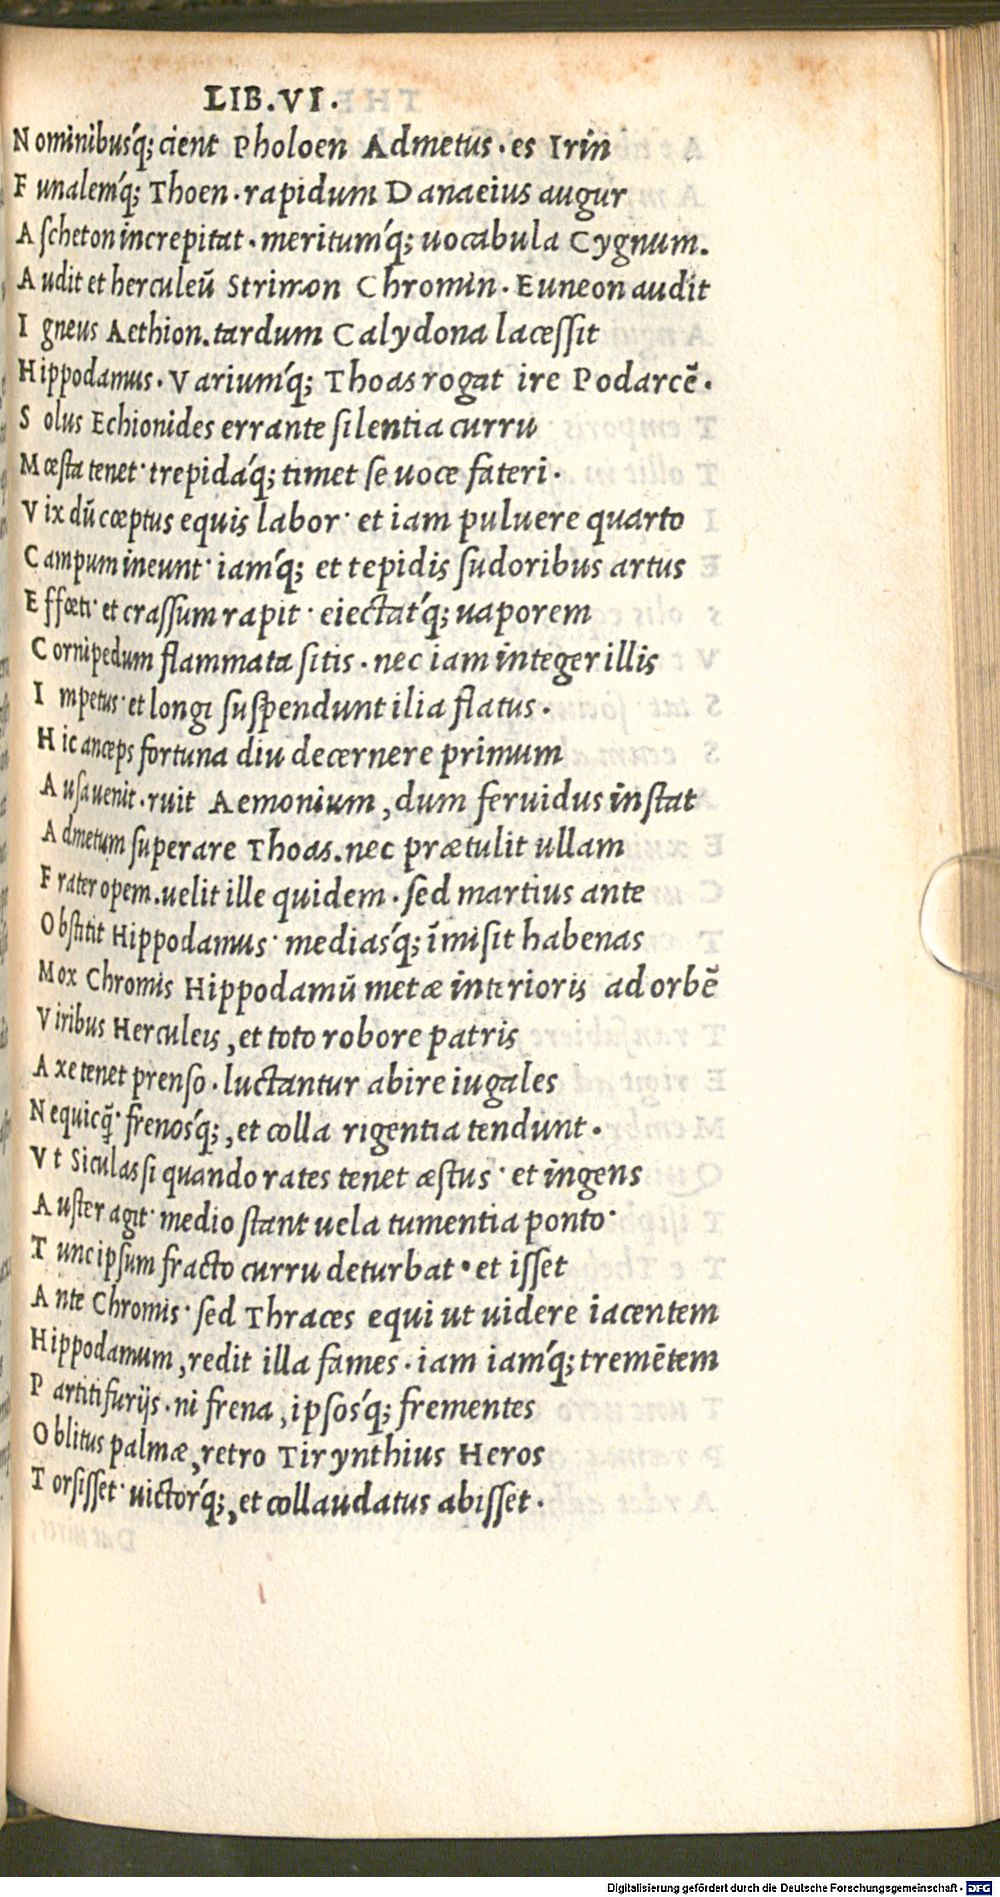 LIB.VI.
Nominibusq́; cient Pholoen Admetus. es Irin
Funalemq́; Thoen. rapidum Danaeius augur
Ascheton increpitat. meritumq́; uocabula Cygnum.
Audit et herculeū Strimon Chromin. Euneon audit
Igneus Aethion. tardum Calydona lacessit
Hippodamus. Variumq́; Thoas rogat ire Podarcē.
Solus Echionides errante silentia curru
Mœsta tenet· trepidáq́; timet se uoce fateri.
Vix dū cœptus equis labor· et iam puluere quarto
Campum ineunt· iamq́; et tepidis sudoribus artus
Effœti· et crassum rapit· eiectatq́; uaporem
Cornipedum flammata sitis. nec iam integer illis
Impetus· et longi suspendunt ilia flatus.
Hic anceps fortuna diu decernere primum
Ausa uenit. ruit Aemonium, dum feruidus instat
Admetum superare Thoas. nec prætulit ullam
Frater opem. uelit ille quidem. sed martius ante
Obstitit Hippodamus· mediasq́; īmisit habenas
Mox Chromis Hippodamū metæ interioris ad orbē
Viribus Herculeis, et toto robore patris
Axe tenet prenso. luctantur abire iugales
Nequicq̃· frenosq́;, et colla rigentia tendunt.
Vt Siculas si quando rates tenet æstus· et ingens
Auster agit· medio stant uela tumentia ponto·
Tunc ipsum fracto curru deturbat· et isset
Ante Chromis· sed Thraces equi ut uidere iacentem
Hippodamum, redit illa fames. iam iamq́; tremētem
Partiti furijs. ni frena, ipsosq́; frementes
Oblitus palmæ, retro Tirynthius Heros
Torsisset· uictorq́;, et collaudatus abisset.
Digitalisierung gefördert durch die Deutsche Forschungsgemeinschaft - DFG